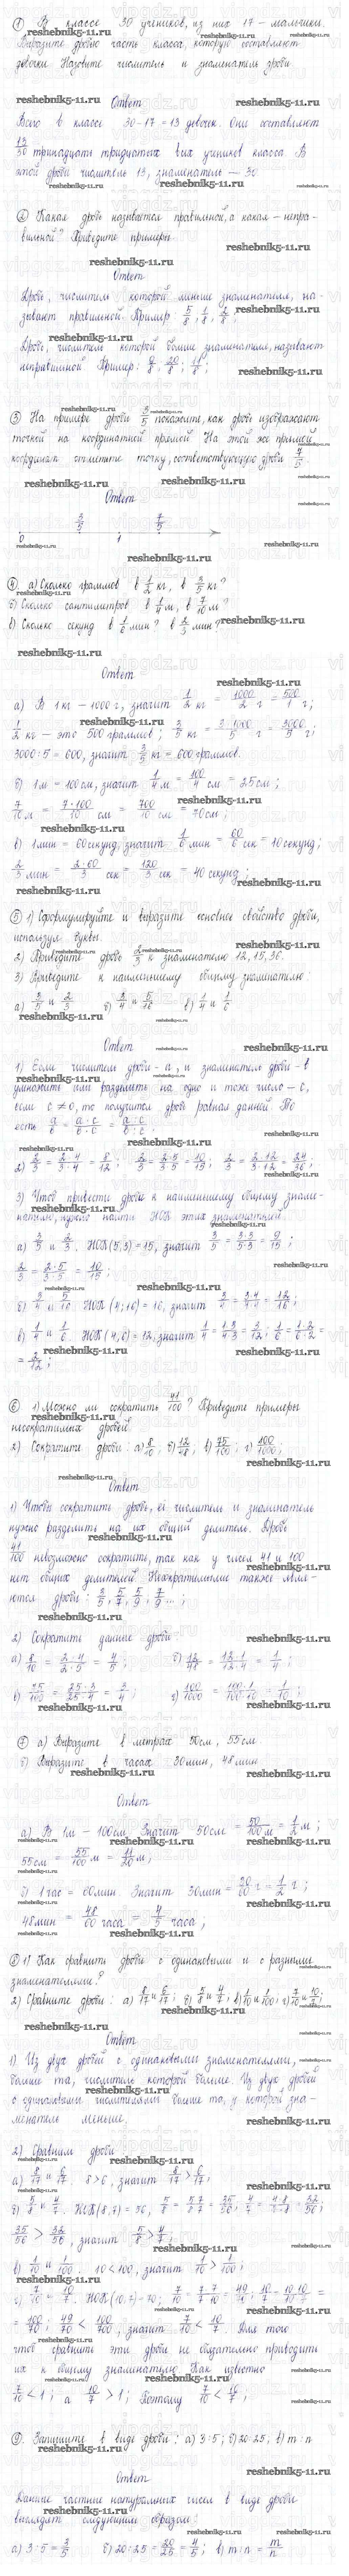 ① В классе 30 учеников, из них 17 - мальчики.
Выразите дробью часть класса, которую составляют
девочки. Назовите числитель и знаменатель дроби
Ответ
Всего в классе 30-17=13 девочек. Они составляют
13/30 тринадцать тридцатых всех учеников класса. В
этой дроби числитель 13, знаменатель — 30.
② Какая дробь называется правильной, а какая - непра-
вильной? Приведите примеры.
Ответ
Дробь, числитель которой меньше знаменателя, на-
зывают правильной. Пример: 5/8; 1/8; 2/8;
Дробь, числитель которой больше знаменателя, называют
неправильной. Пример:
③ На примере дроби 3/5 покажите, как дробь изображают
точкой на координатной прямой. На этой же прямой
отметьте точку, соответствующую дроби 7/5
Ответ
3/5 7/5
0 1
④ а) Сколько граммов в 1/2 кг, в 3/5 кг?
б) Сколько сантиметров в 1/4 м, в 7/10 м?
в) Сколько секунд в 1/6 мин? в 2/3 мин?
Ответ
а) В 1 кг - 1000 г, значит 1/2 кг = 1000/2 г = 500/1 г;
1/2 кг - это 500 граммов; 3/5 кг = 3·1000/5 г = 3000/5 г;
3000:5 = 600, значит 3/5 кг = 600 граммов.
б) 1м = 100см, значит 1/4 м = 100/4 см = 25см;
7/10 м = 7·100/10 см = 700/10 см = 70см;
в) 1мин = 60секунд, значит 1/6 мин = 60/6 сек = 10секунд;
2/3 мин = 2·60/3 сек = 120/3 сек = 40 секунд;
⑤ 1) Сформулируйте и выразите основное свойство дроби,
используя буквы.
2) Приведите дробь 2/3 к знаменателю 12, 15, 36.
3) Приведите к наименьшему общему знаменателю:
а) 3/5 и 2/3 б) 3/4 и 5/16 в) 1/4 и 1/6
Ответ
1) Если числитель дроби - а, и знаменатель дроби - в
умножить или разделить на одно и тоже число - с,
если с ≠ 0, то получится дробь равная данной. То
есть а/в = а·с/в·с = а:с/в:с
2) 2/3 = 2·4/3·4 = 8/12; 2/3 = 2·5/3·5 = 10/15; 2/3 = 2·12/3·12 = 24/36;
3) Чтоб привести дробь к наименьшему общему знаме-
нателю, нужно найти НОК этих знаменателей.
а) 3/5 и 2/3. НОК(5,3)=15, значит 3/5 = 3·3/5·3 = 9/15;
2/3 = 2·5/3·5 = 10/15;
б) 3/4 и 5/16 НОК(4;16) = 16, значит 3/4 = 3·4/4·4 = 12/16;
в) 1/4 и 1/6 НОК(4,6) = 12, значит 1/4 = 1·3/4·3 = 3/12; 1/6 = 1·2/6·2 =
= 2/12;
⑥ 1) Можно ли сократить 41/100? Приведите примеры
несократимых дробей
2) Сократите дроби: а) 8/10; б) 12/48; в) 75/100; г) 100/1000;
Ответ
1) Чтобы сократить дробь, её числитель и знаменатель
нужно разделить на их общий делитель. Дробь
41/100 невозможно сократить, так как у чисел 41 и 100
нет общих делителей. Несократимыми также явля-
ются дроби: 3/5, 5/7, 5/9, 7/9 ...;
2) Сократить данные дроби.
а) 8/10 = 2·4/2·5 = 4/5; б) 12/48 = 12·1/12·4 = 1/4;
в) 75/100 = 25·3/25·4 = 3/4; г) 100/1000 = 100·1/100·10 = 1/10;
⑦ а) Выразите в метрах 50см, 55см
б) Выразите в часах 30мин, 48мин
Ответ
а) В 1м - 100см. Значит 50см = 50/100 м = 1/2 м;
55см = 55/100 м = 11/20 м;
б) 1 час = 60мин. Значит 30мин = 1/2 г;
48мин = 48/60 часа = 4/5 часа;
⑧ 1) Как сравнить дроби с одинаковыми и с разными
знаменателями?
2) Сравните дроби: а) 8/17 и 6/17; б) 5/8 и 4/7; в) 1/10 и 1/100; г) 7/10 и 10/7;
Ответ
1) Из двух дробей с одинаковыми знаменателями,
больше та, числитель которой больше. Из двух дробей
с одинаковыми числителями больше та, у которой зна-
менатель меньше.
2) Сравним дроби
а) 8/17 и 6/17. 8>6, значит 8/17 > 6/17;
б) 5/8 и 4/7. НОК(8,7) = 56, 5/8 = 5·7/8·7 = 35/56; 4/7 = 4·8/7·8 = 32/56;
35/56 > 32/56, значит 5/8 > 4/7;
в) 1/10 и 1/100. 10<100, значит 1/10 > 1/100;
г) 7/10 и 10/7. НОК(10,7)=70, 7/10 = 7·7/10·7 = 49/70; 10/7 = 10·10/7·10 =
= 100/70; 49/70 < 100/70, значит 7/10 < 10/7. Для того
чтоб сравнить эти дроби не обязательно приводить
их к общему знаменателю. Как известно
7/10 < 1; а 10/7 > 1; Поэтому 7/10 < 10/7;
⑨ Запишите в виде дроби: а) 3:5; б) 20:25; в) m:n
Ответ
Данные частные натуральных чисел в виде дроби
выглядят следующим образом:
а) 3:5 = 3/5 б) 20:25 = 20/25 = 4/5 в) m:n = m/n